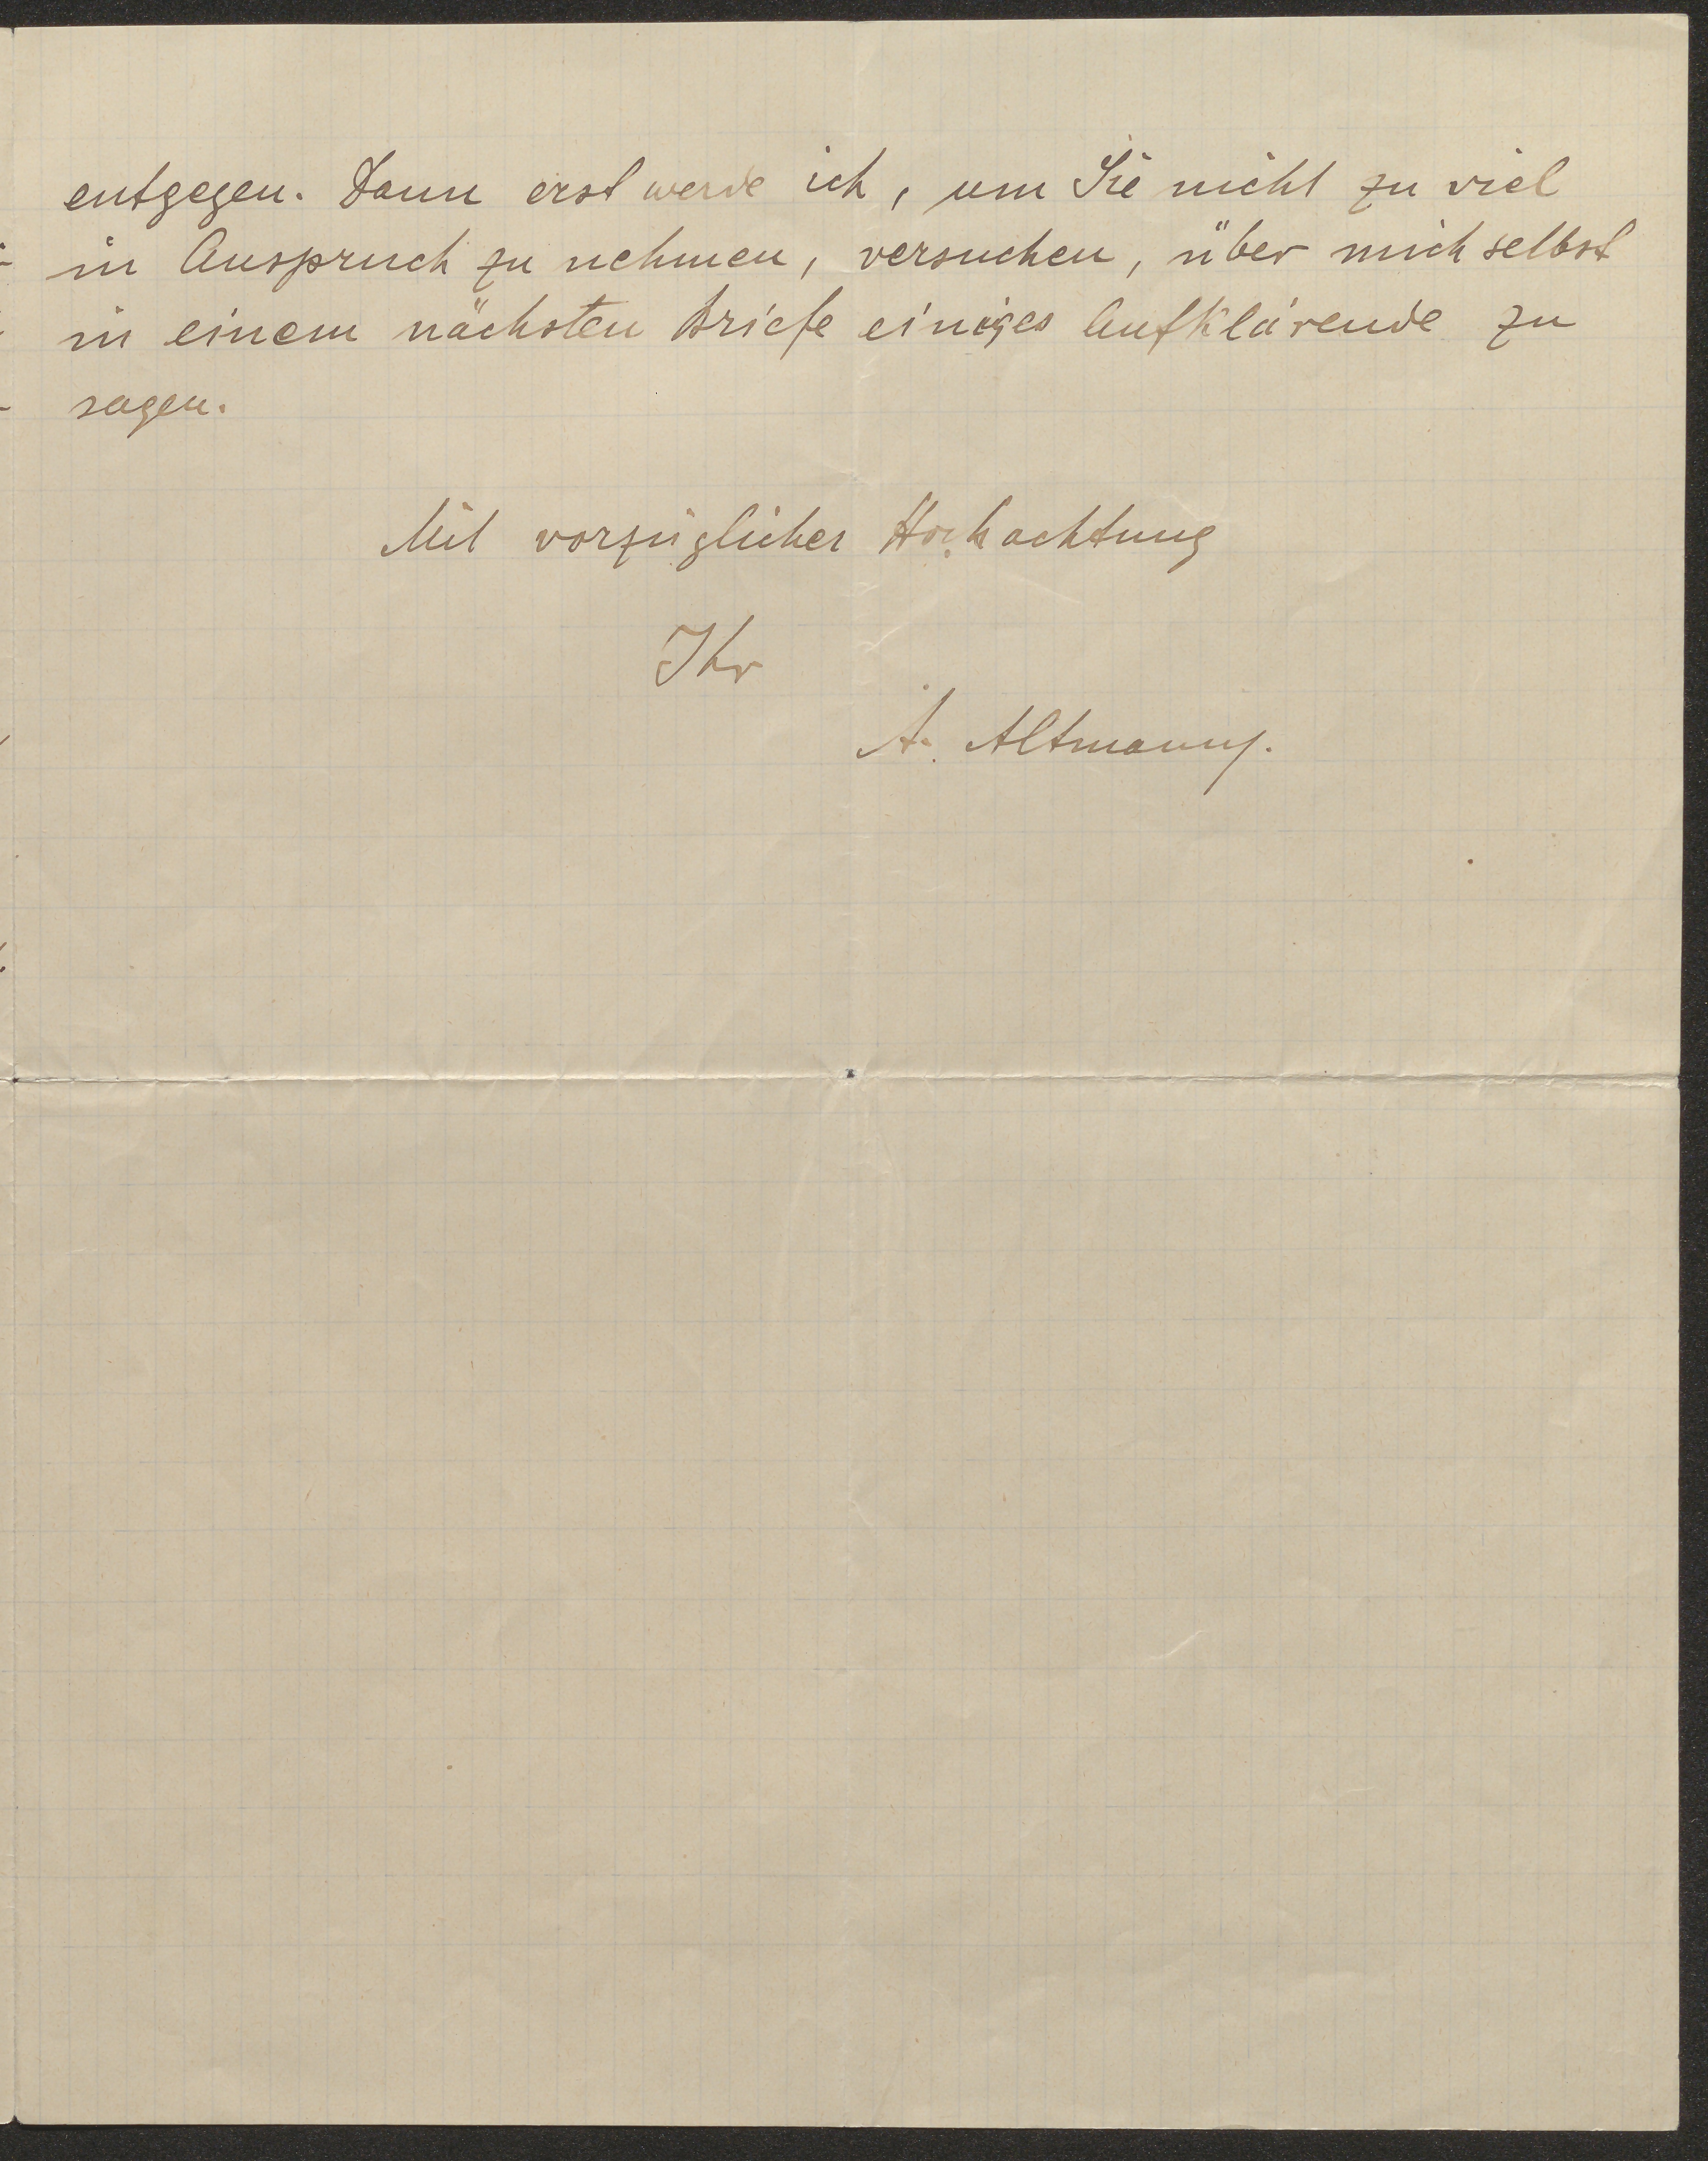 entgegen. Dann erst werde ich, um Sie nicht zu viel
in Anspruch zu nehmen, versuchen, über mich selbst
in einem nächsten Briefe einiges Aufklärende zu
sagen.
Mit vorzüglicher Hochachtung
Ihr
A. Altmann.